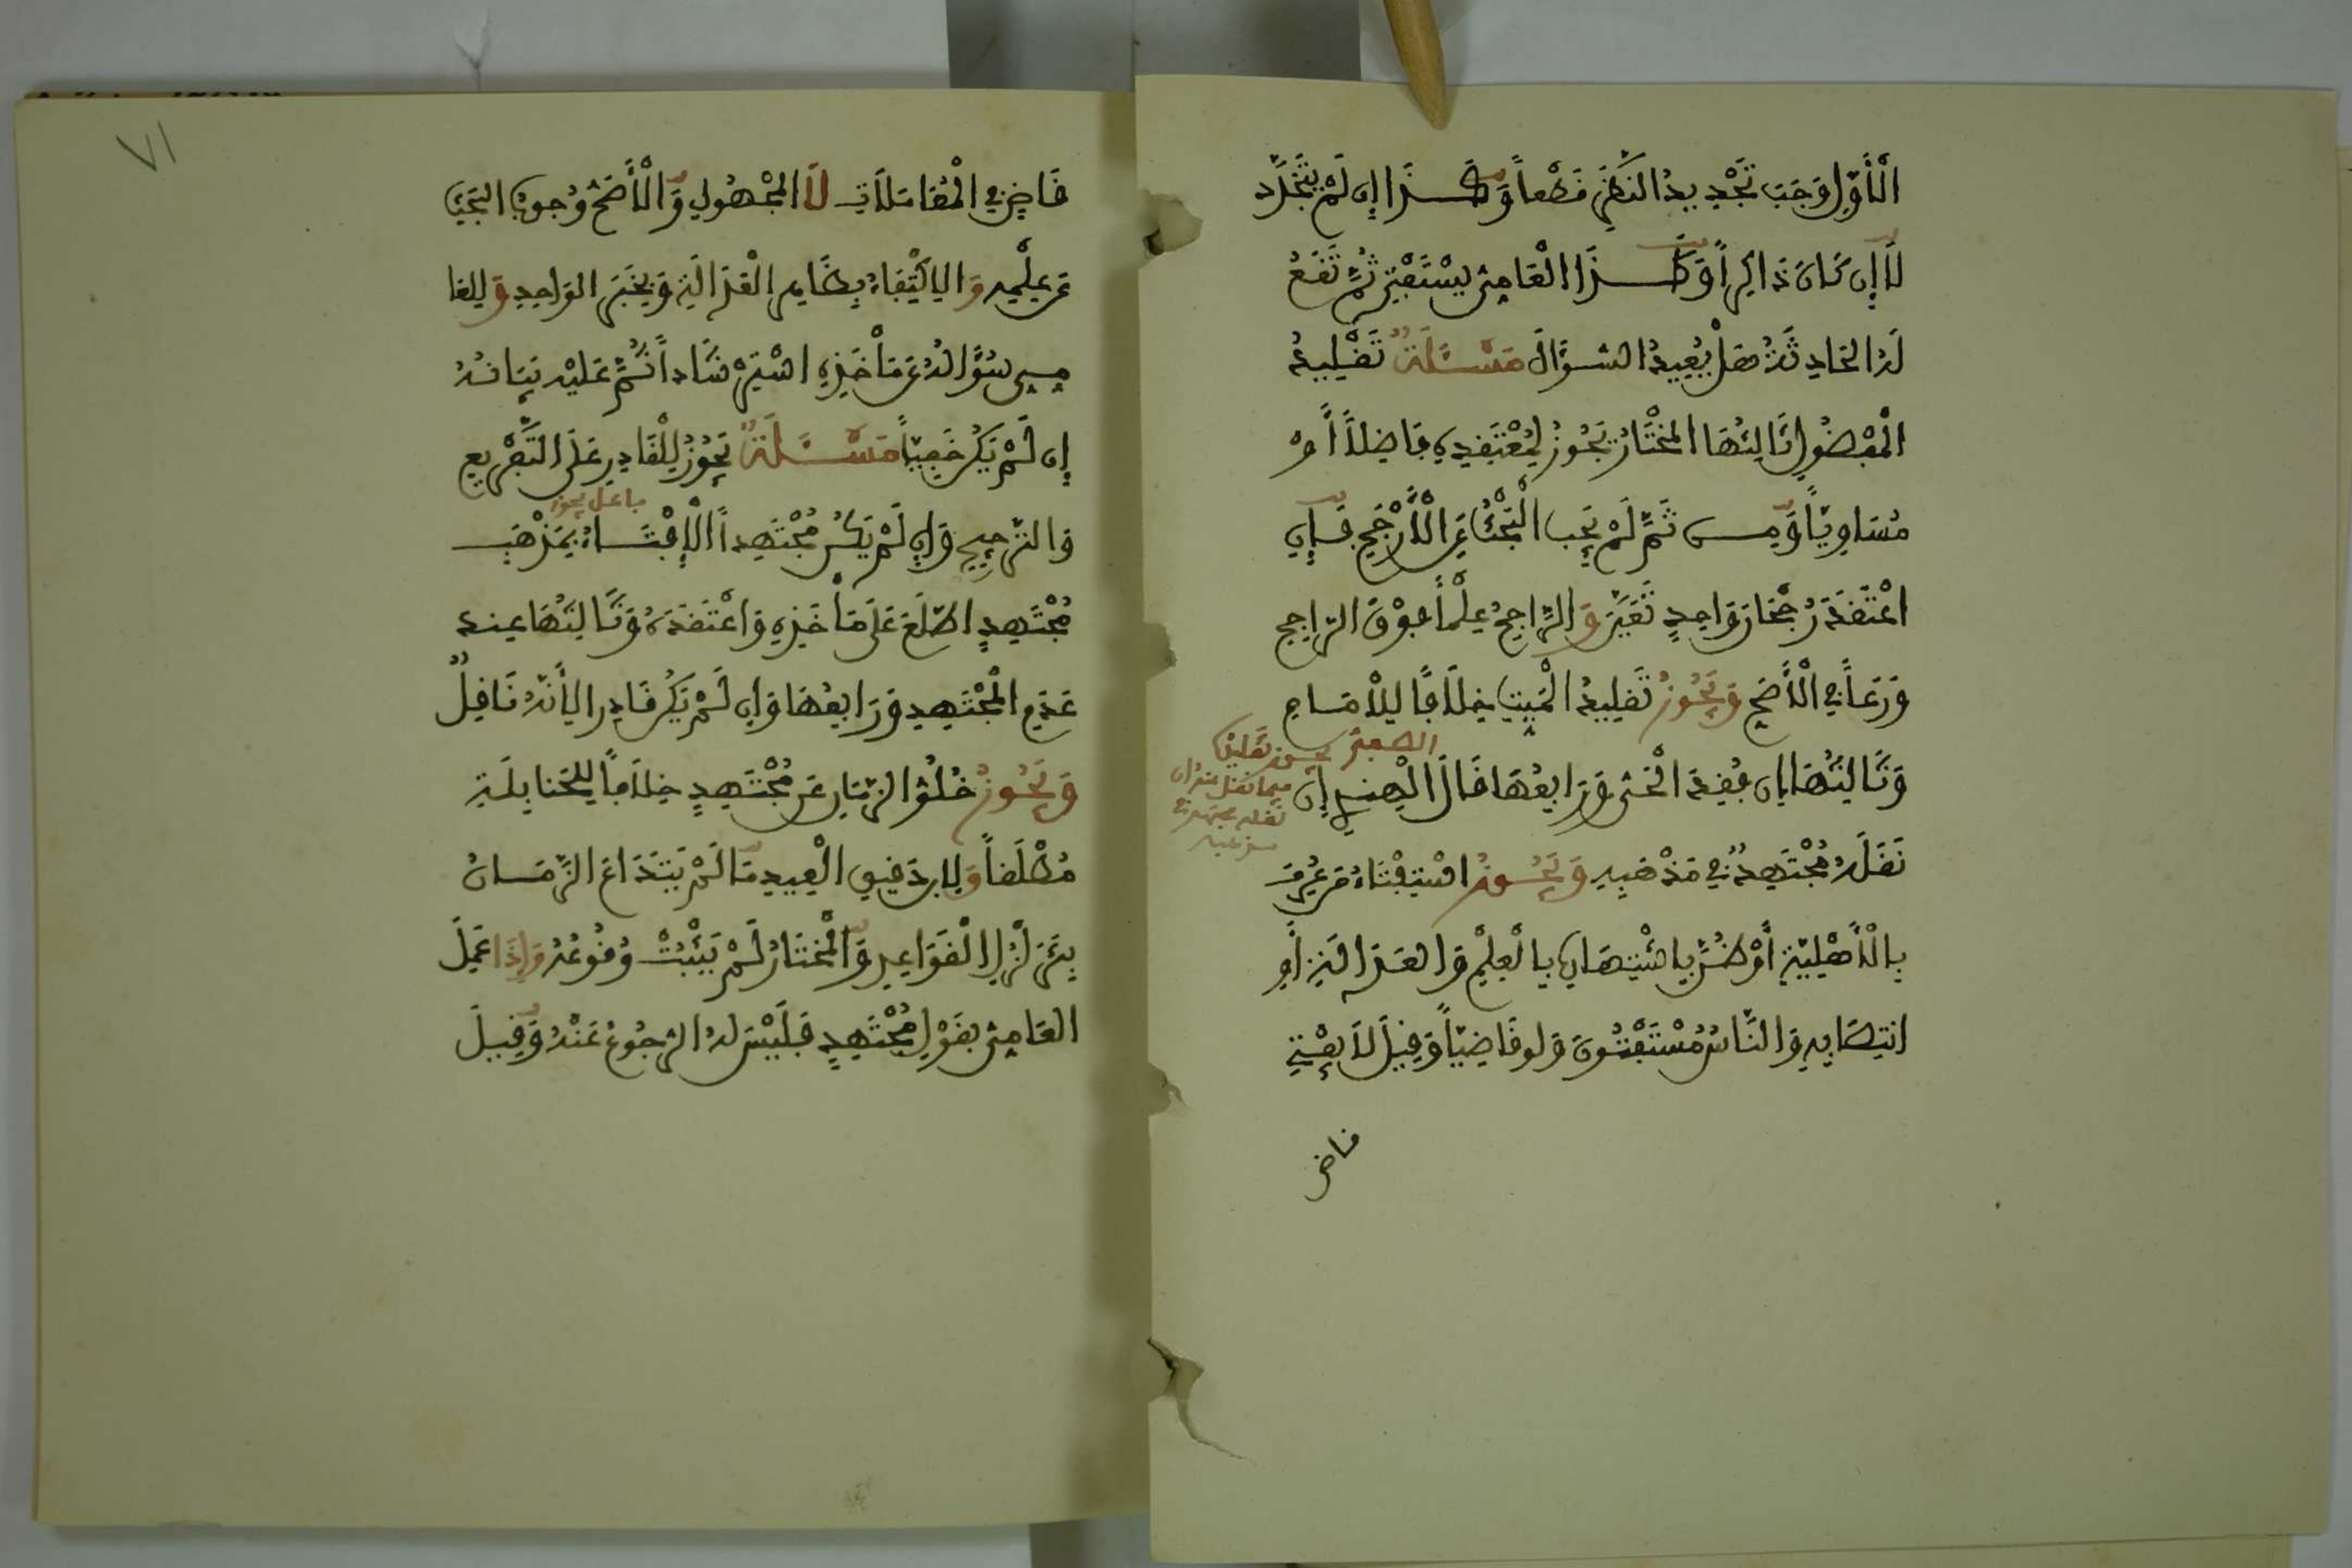 الْأَوَّلِ وَجَبَ تَجْدِيدُ النَّظَرِ قَطْعاً وَكَذَا إِن لَمْ يَتَجَدَّد
لَا إِن كَانَ ذَاكِراً وَكَذَا الْعَامِيُّ يَسْتَفْتِي ثُمَّ تَقَعُ
لَهُ الحَادِثَةُ هَلْ يُعِيدُ السُّؤَالَ مَسْئَلَةٌ تَقْلِيدُ
الْمَفْضُولِ ثَالِثُهَا المُخْتَارُ يَجُوزُ لِمُعْتَقِدِهِ فَاضِلاً أَوْ
مُسَاوِياً وَمِن ثَمَّ لَمْ يَجِب الْبَحْثُ عَنِ الْأَرْجَحِ فَإِنِ
اعْتَقَدَ رُجْحَانَ وَاحِدٍ تَعَيَّنَ وَالرَّاجِحُ عِلْماً فَوْقَ الرَّاجِحِ
وَرَعاً فِي الْأَصَحِّ وَيَجُوزُ تَقْلِيدُ الْمَيِّتِ خِلَافاً لِلْإِمَامِ
وَثَالِثُهَا إِن فُقِدَ الْحَيُّ وَرَابِعُهَا قَالَ الْهِنْدِي إِن
نَقَلَهُ مُجْتَهِدٌ فِي مَذْهَبِهِ وَيَجُوزُ اسْتِفْتَاءُ مَن عُرِفَ
بِالْأَهْلِيَّةِ أَوْ ظُنَّ بِاشْتِهَارِهِ بِالْعِلْمِ وَالْعَدَالَةِ أَوِ
انْتِصَابِهِ وَالنَّاسُ مُسْتَفْتُونَ وَلَو قَاضِياً وَقِيلَ لَا يُفْتِي
قاض
قَاضٍ فِي الْمُعَامَلَاتِ لَا الْمَجْهُولِ وَالْأَصَحُّ وُجُوبُ الْبَحْثِ
عَن عِلْمِهِ وَالِاكْتِفَاءُ بِظَاهِرِ الْعَدَالَةِ وَبِخَبَرِ الوَاحِدِ وَلِلعَا
مِي سُؤَالُهُ عَن مَأْخَذِهِ اسْتِرْشَاداً ثُمَّ عَلَيْهِ بَيَانُهُ
إِن لَمْ يَكُن خَفِيّاً مَسْئَلَةٌ يَجُوزُ لِلْقَادِرِ عَلَى التَّفْرِيعِ
فاعل يجوز
وَالتَّرْجِيحِ وَإِن لَمْ يَكُن مُجْتَهِداً الْإِفْتَاءُ بِمَذْهَبِ
مُجْتَهِدٍ اطَّلَعَ عَلَى مَأْخَذِهِ وَاعْتَقَدَهُ وَثَالِثُهَا عِندَ
عَدَمِ الْمُجْتَهِدِ وَرَابِعُهَا وَإِن لَمْ يَكُن قَادِراً لِأَنَّهُ نَاقِلٌ
وَيَجُوزُ خُلُوُّ الزَّمَانِ عَن مُجْتَهِدٍ خِلَافاً لِلحَنَابِلَةِ
مُطْلَقاً وَلِابنِ دَقِيقِ الْعِيدِ مَا لَمْ يَتَدَاعَ الزَّمَانُ
بِتَزَلْزُلِ الْقَوَاعِدِ وَالْمُخْتَارُ لَمْ يَثْبُتْ وُقُوعُهُ وَإِذَا عَمِلَ
العَامِيُّ بِقَوْلِ مُجْتَهِدٍ فَلَيْسَ لَهُ الرُّجُوعُ عَنْهُ وَقِيلَ
٧١